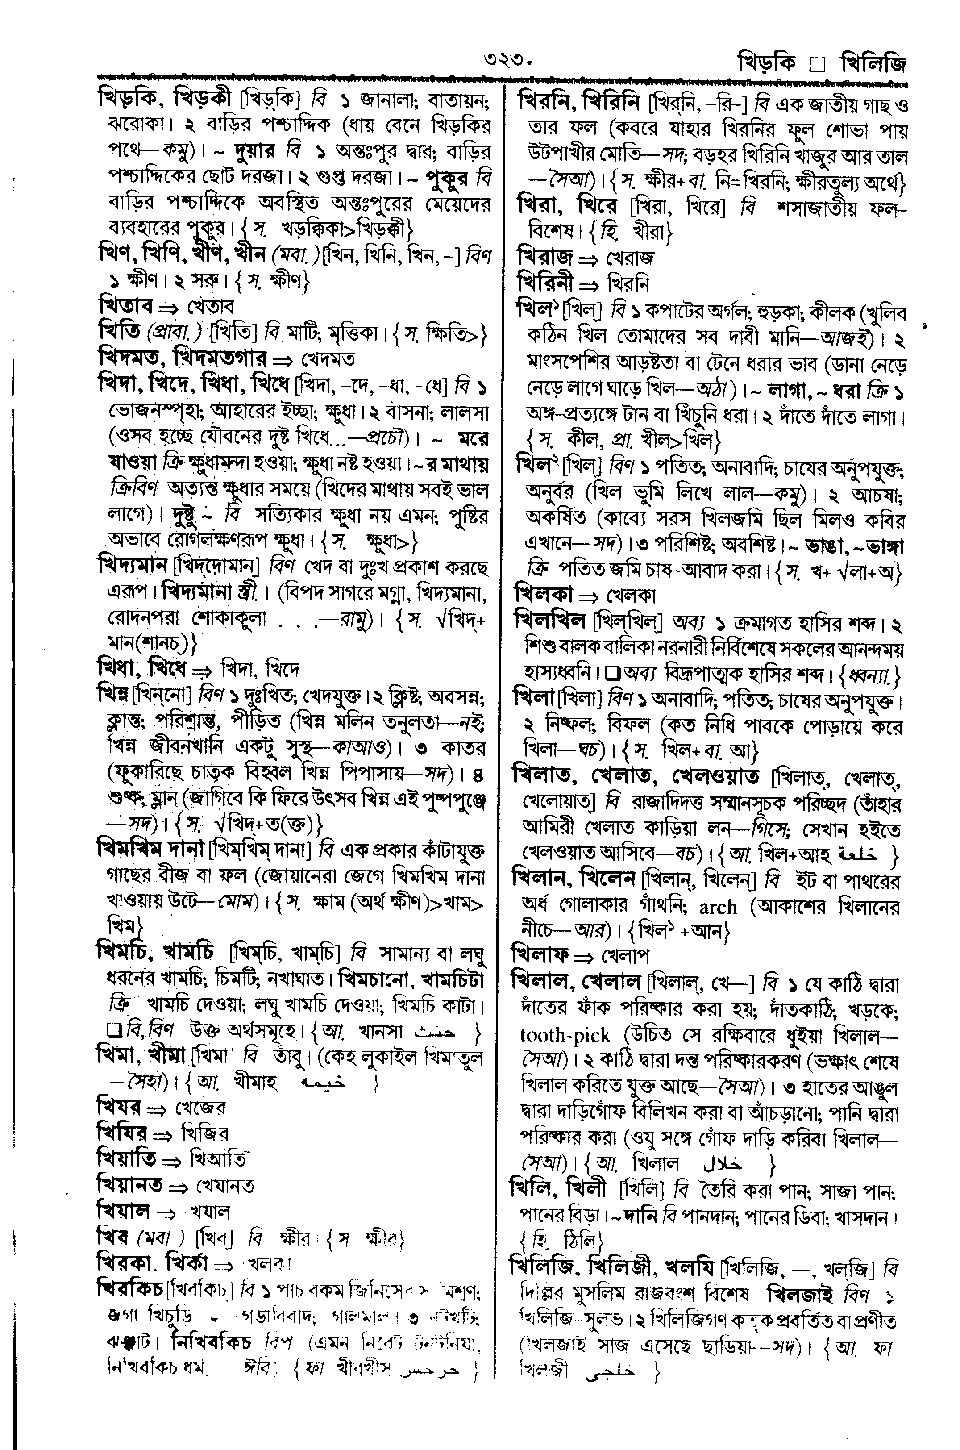 ৩২৩
খিড়কি □ খিলিজি
খিড়কি, খিড়কী [খিড়্‌কি] বি ১ জানালা; বাতায়ন;
ঝরোকা। ২ বাড়ির পশ্চাদ্দিক (ধায় বেনে খিড়কির
পথে—কমু)। ~ দুয়ার বি ১ অন্তঃপুর দ্বার; বাড়ির
পশ্চাদ্দিকের ছোট দরজা। ২ গুপ্ত দরজা। ~ পুকুর বি
বাড়ির পশ্চাদ্দিকে অবস্থিত অন্তঃপুরের মেয়েদের
ব্যবহারের পুকুর। {স. খড়ক্কিকা>খিড়ক্কী}
খিণ, খিণি, খীণ, খীন (মবা.) [খিন, খিনি, খিন, -] বিণ
১ ক্ষীণ। ২ সরু। {স. ক্ষীণ}
খিতাব ⇒ খেতাব
খিতি (প্রাবা.) [খিতি] বি মাটি; মৃত্তিকা। {স. ক্ষিতি>}
খিদমত, খিদমতগার ⇒ খেদমত
খিদা, খিদে, খিধা, খিধে [খিদা, -দে, -ধা, -ধে] বি ১
ভোজনস্পৃহা; আহারের ইচ্ছা; ক্ষুধা। ২ বাসনা; লালসা
(ওসব হচ্ছে যৌবনের দুষ্ট খিধে...—প্রচৌ)। ~ মরে
যাওয়া ক্রি ক্ষুধামন্দা হওয়া; ক্ষুধা নষ্ট হওয়া। ~র মাথায়
ক্রিবিণ অত্যন্ত ক্ষুধার সময়ে (খিদের মাথায় সবই ভাল
লাগে)। দুষ্টু ~ বি সত্যিকার ক্ষুধা নয় এমন; পুষ্টির
অভাবে রোগলক্ষণরূপ ক্ষুধা। {স. ক্ষুধা>}
খিদ্যমান [খিদ্‌দোমান] বিণ খেদ বা দুঃখ প্রকাশ করছে
এরূপ। খিদ্যমানা স্ত্রী। (বিপদ সাগরে মগ্না, খিদ্যমানা,
রোদনপরা শোকাকুলা . . .—রামু)। {স. √খিদ্+
মান(শানচ)}
খিধা, খিধে ⇒ খিদা, খিদে
খিন্ন [খিন্‌নো] বিণ ১ দুঃখিত; খেদযুক্ত। ২ ক্লিষ্ট; অবসন্ন;
ক্লান্ত; পরিশ্রান্ত, পীড়িত (খিন্ন মলিন তনুলতা—নই;
খিন্ন জীবনখানি একটু সুস্থ—কাআও)। ৩ কাতর
(ফুকারিছে চাতক বিহ্বল খিন্ন পিপাসায়—সদ)। ৪
শুষ্ক; ম্লান (জাগিবে কি ফিরে উৎসব খিন্ন এই পুষ্পপুঞ্জে
—সদ)। {স. √খিদ্+ত(ক্ত)}
খিমখিম দানা [খিম্‌খিম্ দানা] বি এক প্রকার কাঁটাযুক্ত
গাছের বীজ বা ফল (জোয়ানেরা জেগে খিমখিম দানা
খাওয়ায় উটে—মোম)। {স. ক্ষাম (অর্থ ক্ষীণ)>খাম>
খিম}
খিমচি, খামচি [খিম্‌চি, খাম্‌চি] বি সামান্য বা লঘু
ধরনের খামচি; চিমটি; নখাঘাত। খিমচানো, খামচিটা
ক্রি খামচি দেওয়া; লঘু খামচি দেওয়া; খিমচি কাটা।
❑ বি, বিণ উক্ত অর্থসমূহে। {আ. খানসা }
খিমা, খীমা [খিমা বি তাঁবু। (কেহ লুকাইল খিমা তুল
—সৈহা)। {আ. খীমাহ خيمه }
খিযর ⇒ খেজের
খিযির ⇒ খিজির
খিয়াতি ⇒ খিআতি
খিয়ানত ⇒ খেযানত
খিয়াল ⇒ খযাল
খির (মবা ) [খির্] বি ক্ষীর। {স ক্ষীর}
খিরকা, খির্কা ⇒
খিরকিচ [খির্‌কিচ্] বি ১
খিরনি, খিরিনি [খির্‌নি, -রি-] বি এক জাতীয় গাছ ও
তার ফল (কবরে যাহার খিরনির ফুল শোভা পায়
উটপাখীর মোতি—সদ; বড়হর খিরিনি খাজুর আর তাল
—সৈআ)। {স. ক্ষীর+ বা. নি=খিরনি; ক্ষীরতুল্য অর্থে}
খিরা, খিরে [খিরা, খিরে] বি শসাজাতীয় ফল-
বিশেষ। {হি. খীরা}
খিরাজ ⇒ খেরাজ
খিরিনী ⇒ খিরনি
খিল¹ [খিল্] বি ১ কপাটের অর্গল; হুড়কা; কীলক (খুলিব
কঠিন খিল তোমাদের সব দাবী মানি—আজই)। ২
মাংসপেশির আড়ষ্টতা বা টেনে ধরার ভাব (ডানা নেড়ে
নেড়ে লাগে ঘাড়ে খিল—অঠা)। ~ লাগা, ~ ধরা ক্রি ১
অঙ্গ-প্রত্যঙ্গে টান বা খিঁচুনি ধরা। ২ দাঁতে দাঁতে লাগা।
{স. কীল, প্রা. খীল>খিল}
খিল² [খিল্] বিণ ১ পতিত; অনাবাদি; চাষের অনুপযুক্ত;
অনুর্বর (খিল ভূমি লিখে লাল—কমু)। ২ আচষা;
অকর্ষিত (কাব্যে সরস খিলজমি ছিল মিলও কবির
এখানে—সদ)। ৩ পরিশিষ্ট; অবশিষ্ট। ~ ভাঙা, ~ভাঙ্গা
ক্রি পতিত জমি চাষ-আবাদ করা। {স. খ+ √লা+অ}
খিলকা ⇒ খেলকা
খিলখিল [খিল্‌খিল্] অব্য ১ ক্রমাগত হাসির শব্দ। ২
শিশু বালক বালিকা নরনারী নির্বিশেষে সকলের আনন্দময়
হাস্যধ্বনি। ❑ অব্য বিদ্রূপাত্মক হাসির শব্দ। {ধ্বন্যা.}
খিলা [খিলা] বিণ ১ অনাবাদি; পতিত; চাষের অনুপযুক্ত।
২ নিষ্ফল; বিফল (কত নিধি পাবকে পোড়ায়ে করে
খিলা—ঘচ)। {স. খিল+বা. আ}
খিলাত, খেলাত, খেলওয়াত [খিলাত্, খেলাত্,
খেলোয়াত্] বি রাজাদিদত্ত সম্মানসূচক পরিচ্ছদ (তাঁহার
আমিরী খেলাত কাড়িয়া লন—গিসে; সেখান হইতে
খেলওয়াত আসিবে—বচ)। {আ. খিল+আহ خلعة }
খিলান, খিলেন [খিলান্, খিলেন্] বি ইট বা পাথরের
অর্ধ গোলাকার গাঁথনি; arch (আকাশের খিলানের
নীচে—আর)। {খিল¹ +আন}
খিলাফ ⇒ খেলাপ
খিলাল, খেলাল [খিলাল্, খে—] বি ১ যে কাঠি দ্বারা
দাঁতের ফাঁক পরিষ্কার করা হয়; দাঁতকাঠি; খড়কে;
tooth-pick (উচিত সে রক্ষিবারে ধুইয়া খিলাল—
সৈআ)। ২ কাঠি দ্বারা দন্ত পরিষ্কারকরণ (ভক্ষ্যৎ শেষে
খিলাল করিতে যুক্ত আছে—সৈআ)। ৩ হাতের আঙুল
দ্বারা দাড়িগোঁফ বিলিখন করা বা আঁচড়ানো; পানি দ্বারা
পরিষ্কার করা (ওযু সঙ্গে গোঁফ দাড়ি করিবা খিলাল—
সৈআ)। {আ. খিলাল خلال }
খিলি, খিলী [খিলি] বি তৈরি করা পান; সাজা পান;
পানের বিড়া। ~দানি বি পানদান; পানের ডিবা; খাসদান।
{হি. ঠিলি}
খিলিজি, খিলিজী, খলযি [খিলিজি, —, খল্‌জি] বি
দিল্লির মুসলিম রাজবংশ বিশেষ খিলজাই বিণ ১
খিলিজি-সুলভ। ২ খিলিজিগণ কর্তৃক প্রবর্তিত বা প্রণীত
(খিলজাই সাজ এসেছে ছাড়িয়া—সদ)। {আ. ফা
খিলজী خلجى }